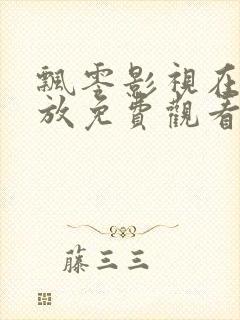 飄零影視在
放免費觀看
藤三三